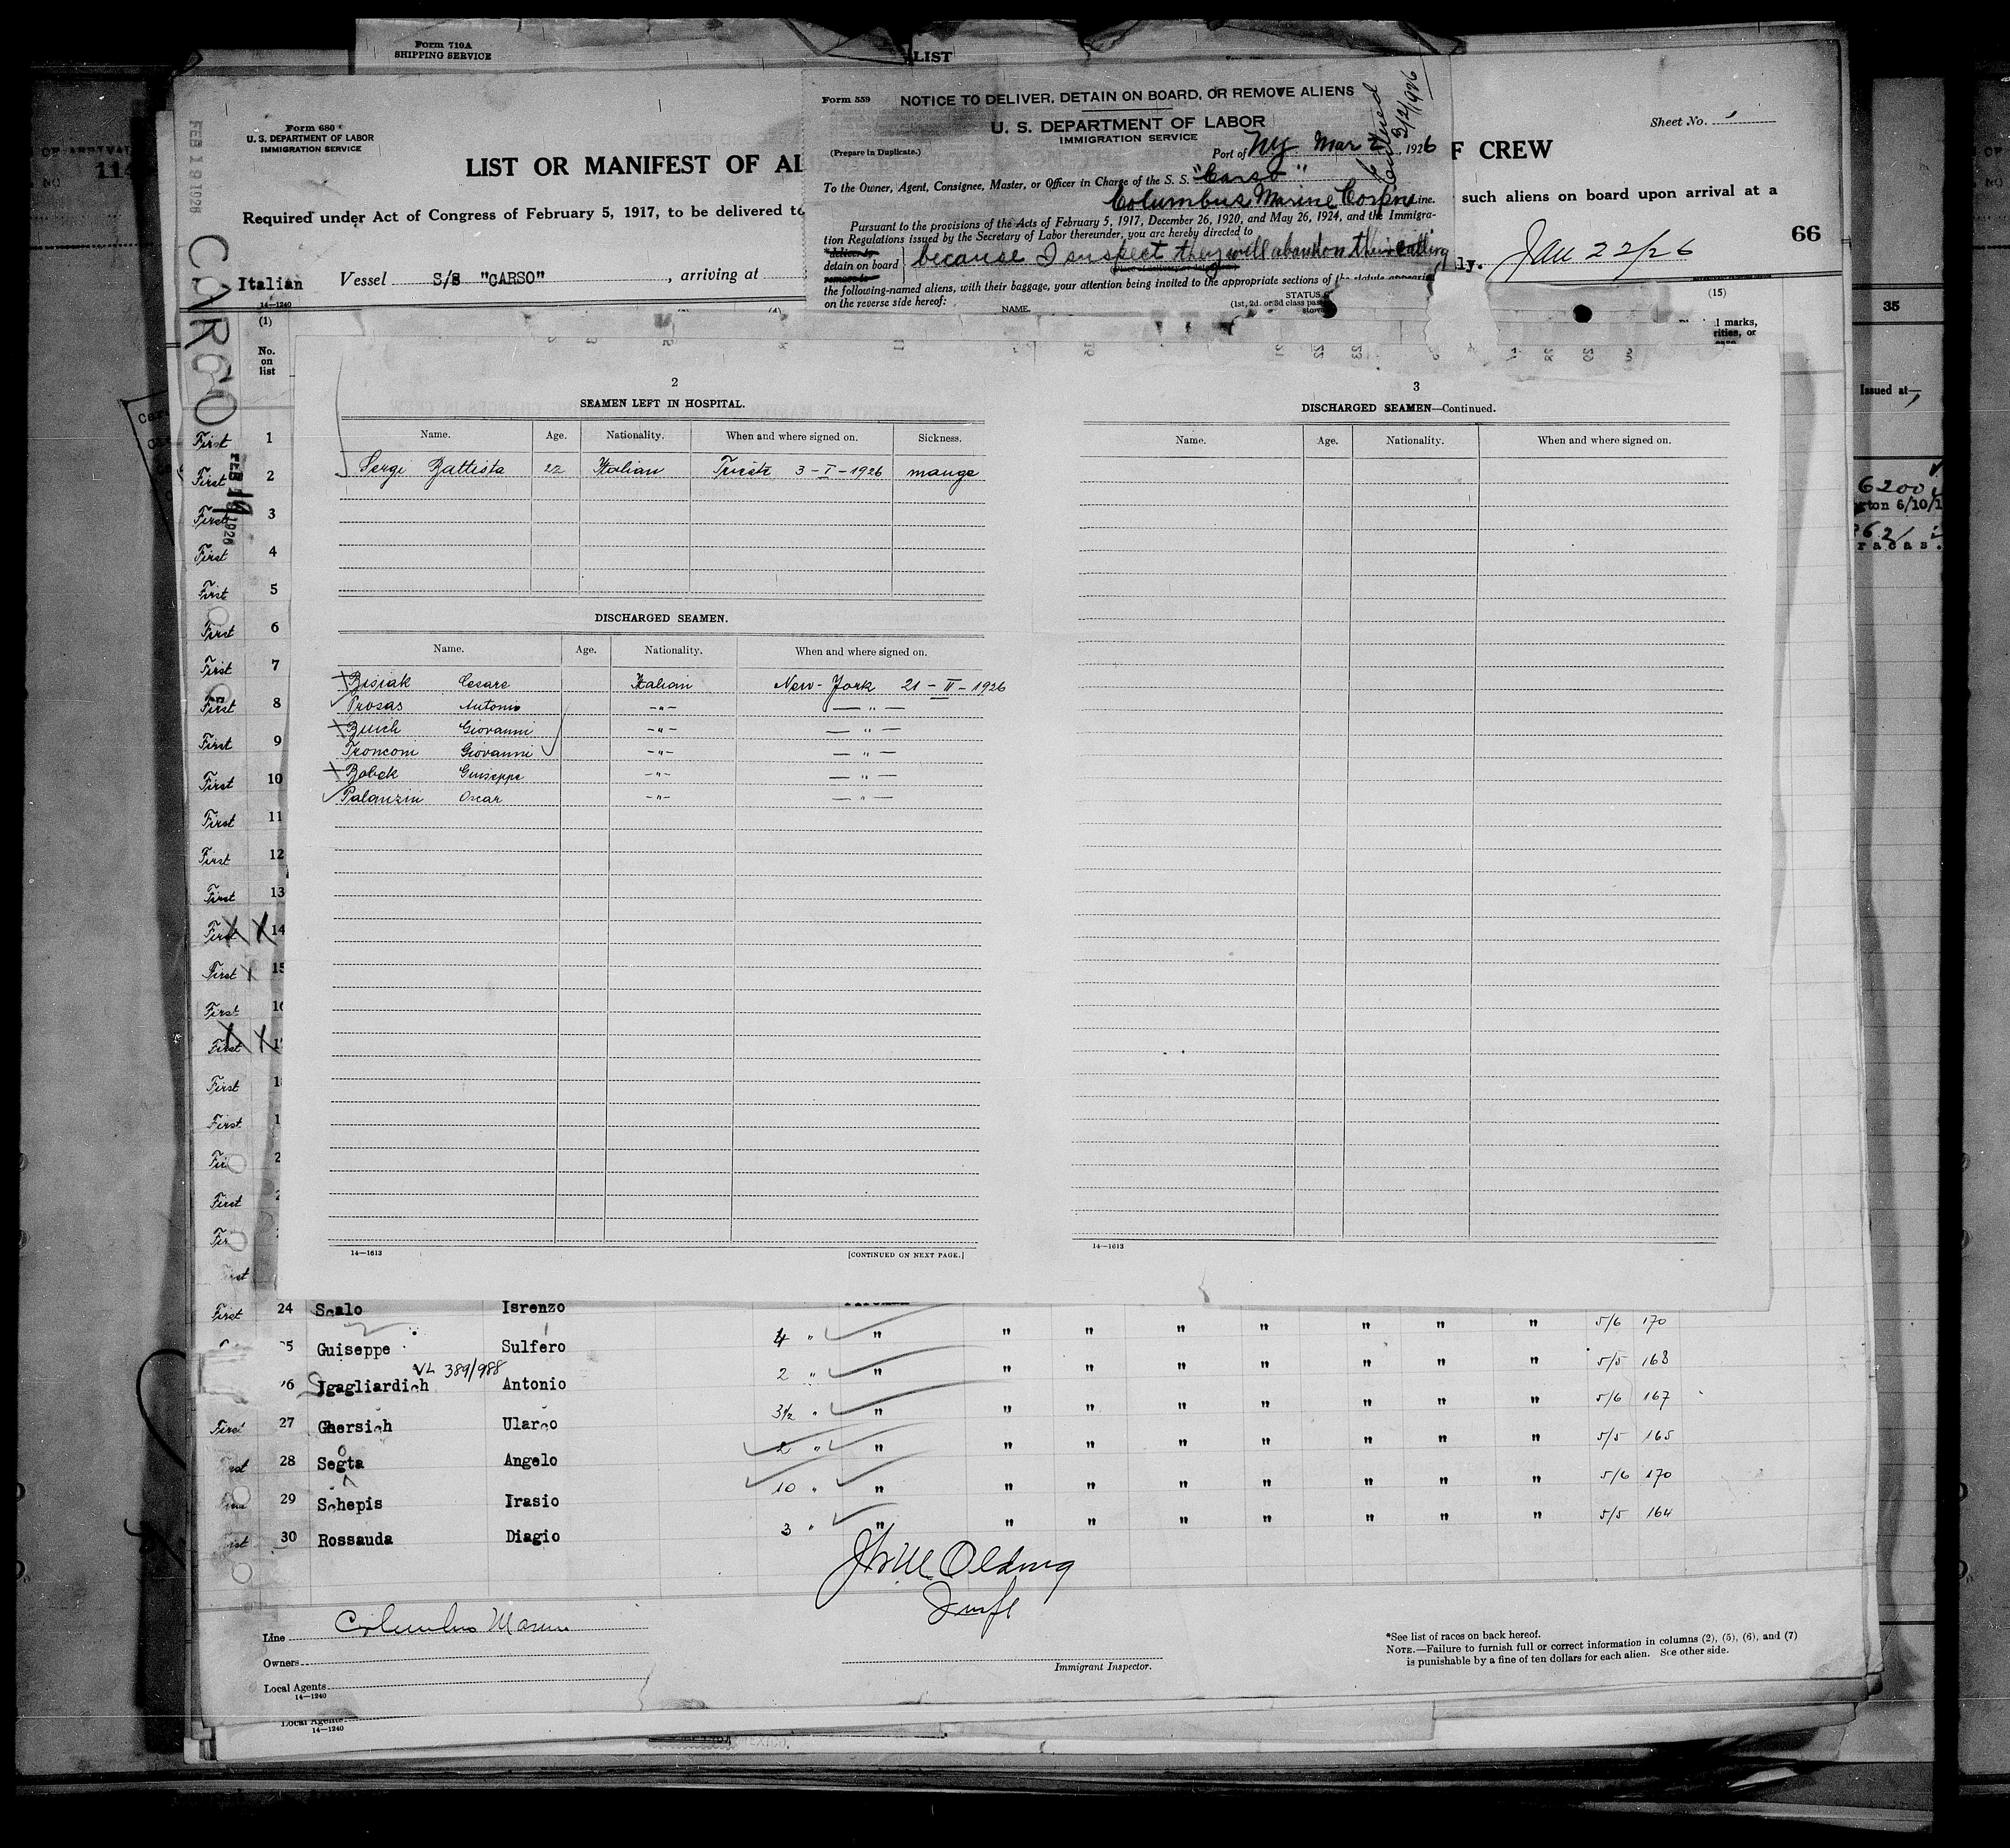 Form 710A
SHIPPING SERVICE
LIST
Form 680
U. S. DEPARTMENT OF LABOR
IMMIGRATION SERVICE
FEB 19 1926
LIST OR MANIFEST OF AL
Required under Act of Congress of February 5, 1917, to be delivered to
Italian Vessel S/S "CARSO" , arriving at
14-1240
CARGO
Form 559
NOTICE TO DELIVER, DETAIN ON BOARD, OR REMOVE ALIENS
U. S. DEPARTMENT OF LABOR
IMMIGRATION SERVICE
(Prepare in Duplicate.)
Port of NY Mar 2 , 1926
3/2/1926
To the Owner, Agent, Consignee, Master, or Officer in Charge of the S. S. "Carso"
Columbus Marine Corpn Line.
Pursuant to the provisions of the Acts of February 5, 1917, December 26, 1920, and May 26, 1924, and the Immigra-
tion Regulations issued by the Secretary of Labor thereunder, you are hereby directed to
deliver to
detain on board
remove to
because I suspect they will abandon their calling
the following-named aliens, with their baggage, your attention being invited to the appropriate sections of the statute appearing
on the reverse side hereof:
NAME.
STATUS
(1st, 2d, or 3d class pas
Sheet No.
F CREW
such aliens on board upon arrival at a
ly. Jan 22/26
66
(1)
No.
on
list
(15)
l marks,
rities, or
35
Issued at—
6200
gton 6/10/1
racas.
2
SEAMEN LEFT IN HOSPITAL.
Name. Age. Nationality. When and where signed on. Sickness.
Sergi Battista 22 Italian Trieste 3-I-1926 mange
DISCHARGED SEAMEN.
Name. Age. Nationality. When and where signed on.
Bisiak Cesare Italian New-York 21-II-1926
Prosas Antonio -"- -"-
Zuich Giovanni -"- -"-
Tronconi Giovanni -"- -"-
Bobek Guiseppe -"- -"-
Palanzin Oscar -"- -"-
14—1613
[CONTINUED ON NEXT PAGE.]
3
DISCHARGED SEAMEN—Continued.
Name. Age. Nationality. When and where signed on.
14—1613
First 1
First 2
FEB 19 1926
First 3
First 4
First 5
First 6
First 7
First 8
First 9
First 10
First 11
First 12
First 13
First 14
First 15
First
First
First
First
First
First
First 24 Scalo Isrenzo 4 " " " " " " " " " 5/6 170
5 Guiseppe Sulfero 2 " " " " " " " " " 5/5 163
VL 389/988
6 Sgagliardich Antonio 3½ " " " " " " " " " 5/6 167
First 27 Ghersich Ularco 2 " " " " " " " " " 5/5 165
28 Segta Angelo 10 " " " " " " " " " 5/6 170
29 Schepis Irasio 3 " " " " " " " " " 5/5 164
30 Rossauda Diagio
Line Columbus Marine
Owners
Local Agents
14—1240
Immigrant Inspector.
*See list of races on back hereof.
NOTE.—Failure to furnish full or correct information in columns (2), (5), (6), and (7)
is punishable by a fine of ten dollars for each alien. See other side.
Local Agents
14—1240